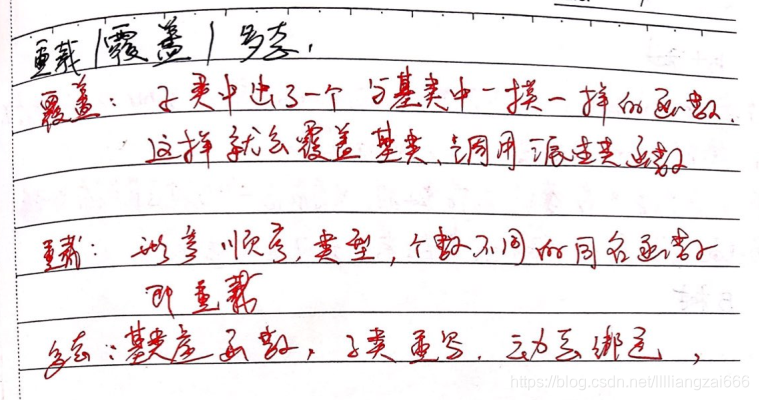 重载/覆盖/多态.
覆盖: 子类中出了一个与基类中一摸一样的函数.
这样就会覆盖基类、调用派生类函数
重载: 形参顺序,类型,个数不同的同名函数
即重载
多态:基类虚函数,子类重写.动态绑定,
https://blog.csdn.net/lllliangzai666